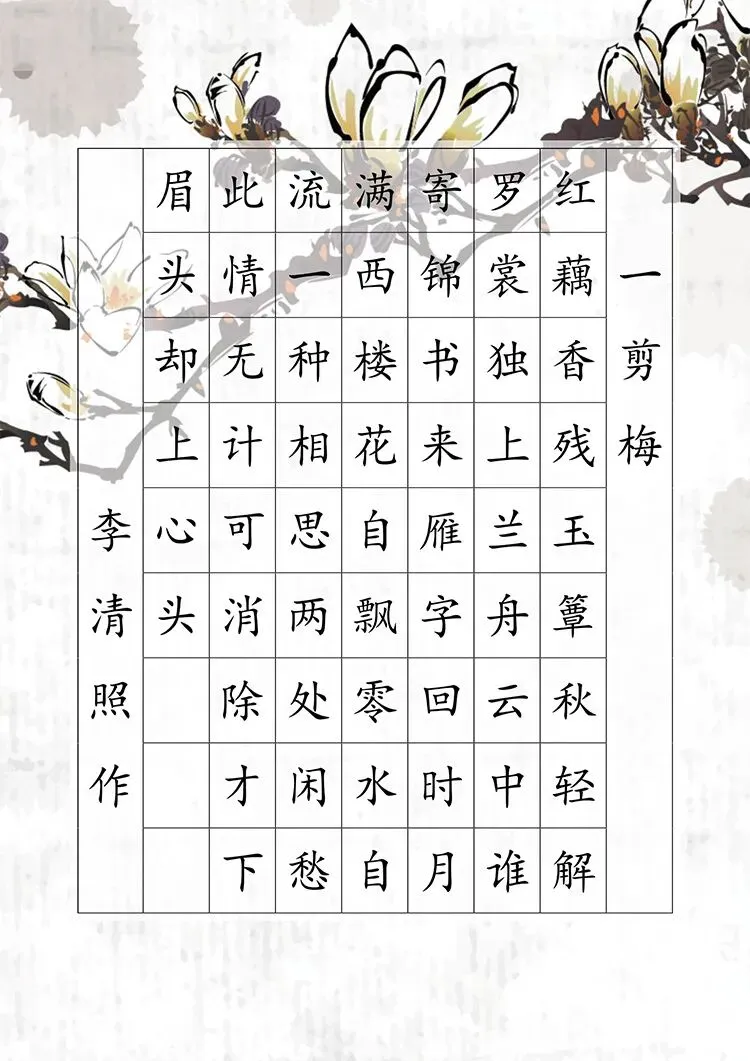 一剪梅
红藕香残玉簟秋轻解
罗裳独上兰舟云中谁
寄锦书来雁字回时月
满西楼花自飘零水自
流一种相思两处闲愁
此情无计可消除才下
眉头却上心头
李清照作